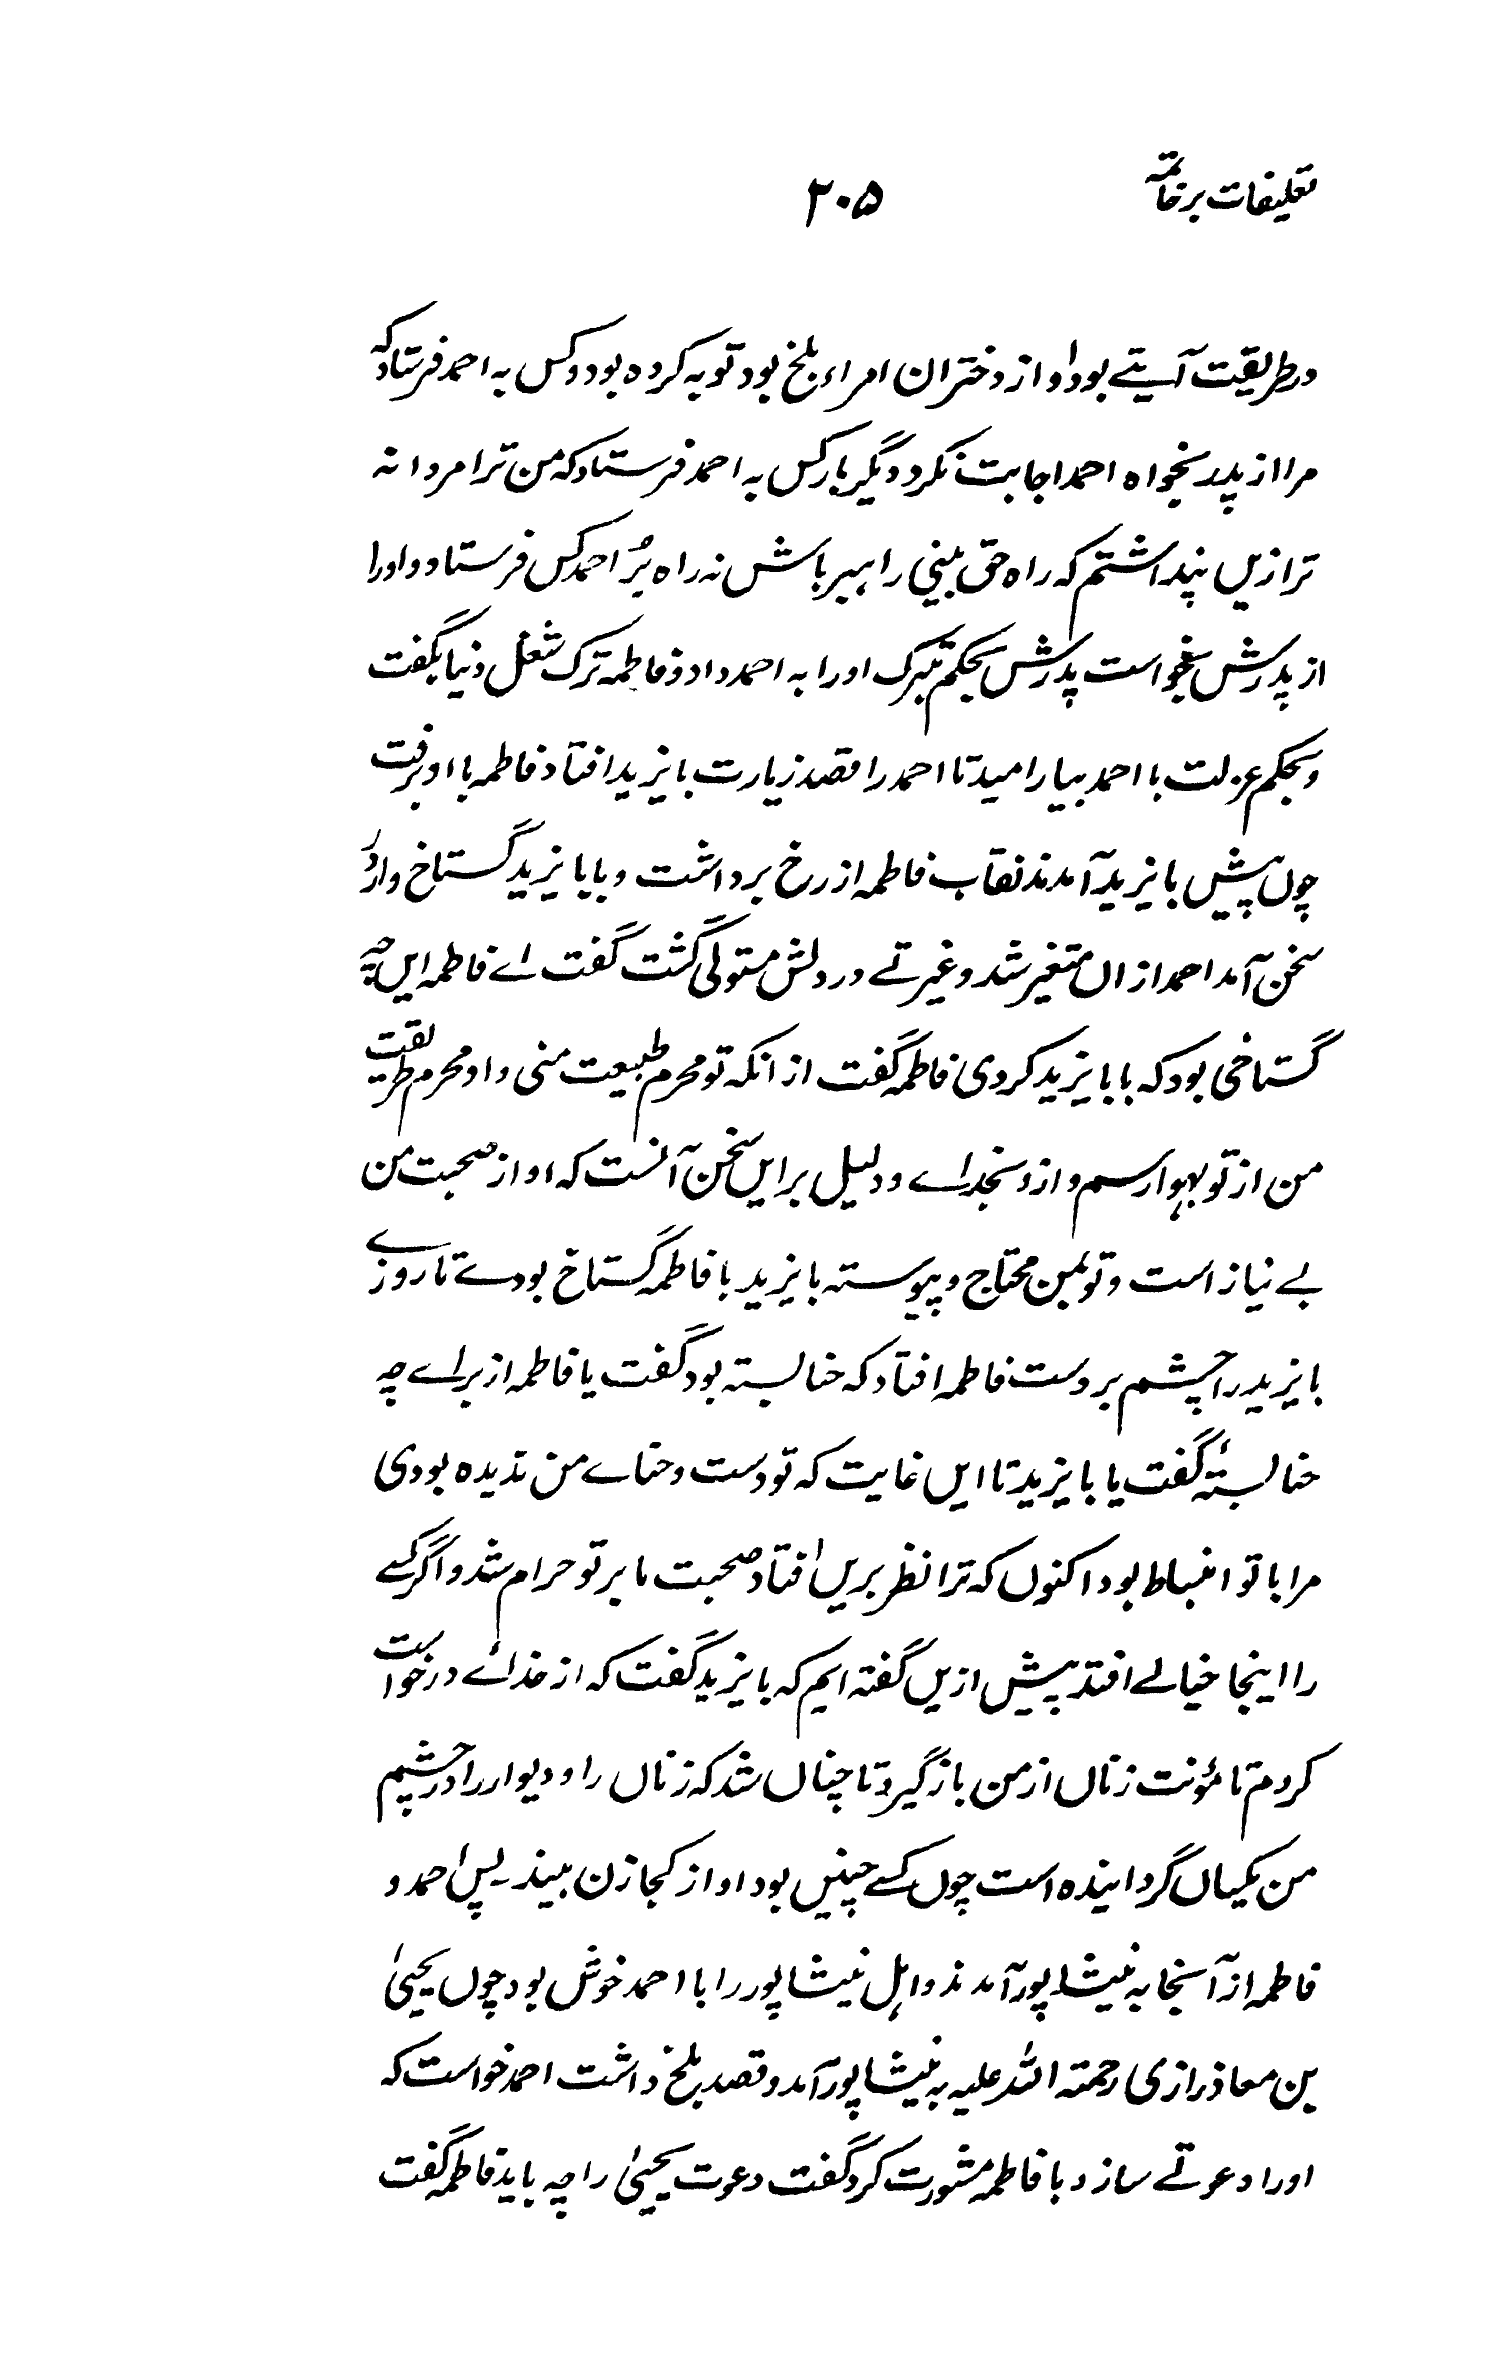 تعلیقات برخاتمه
۲۰۵
در طریقت آیتے بود او از دختران امراء بلخ بود توبه کرده بود وکس به احمد فرستاد که
مرا از پدر بخواه احمد اجابت نکرد دیگر بار کس به احمد فرستاد که من ترا مردانه
ترازیں پنداشتم که راه حق بینی راہبر باش نه راه بُر احمد کس فرستاد و اورا
از پدرش بخواست پدرش بحکم تبرک اورا به احمد داد و فاطمه ترک شغل دنیا بگفت
و بحکم عزلت با احمد بیارامید تا احمد را قصد زیارت بایزید افتاد فاطمه با او برفت
چوں پیش بایزید آمدند نقاب فاطمه از رخ برداشت و با بایزید گستاخ وار در
سخن آمد احمد ازاں متغیر شد و غیرتے در دلش مستولی گشت گفت اے فاطمه ایں چه
گستاخی بود که با بایزید کردی فاطمه گفت ازانکه تو محرم طبیعت منی و او محرم طریقت
من از تو بہوا رسم و ازو بخداے و دلیل برایں سخن آنست که او از صحبت من
بے نیاز است و تو بمن محتاج و پیوسته بایزید با فاطمه گستاخ بودے تا روزے
بایزید را چشم بر دست فاطمه افتاد که حنا بسته بود گفت یا فاطمه از براے چه
حنا بستهٔ گفت یا بایزید تا ایں غایت که تو دست و حناے من ندیده بودی
مرا با تو انبساط بود اکنوں که ترا نظر بریں افتاد صحبت ما بر تو حرام شد و اگر کسے
را اینجا خیالے افتد پیش ازیں گفته ایم که بایزید گفت که از خداے درخواست
کردم تا مؤنت زناں از من بازگیرد تا چناں شد که زناں را و دیوار را در چشم
من یکساں گردانیده است چوں کسے چنیں بود او از کجا زن بیند۔ پس احمد و
فاطمه از آنجا به نیشاپور آمدند و اہل نیشاپور را با احمد خوش بود چوں یحییٰ
بن معاذ رازی رحمته الله علیه به نیشاپور آمد و قصد بلخ داشت احمد خواست که
اورا دعوتے سازد با فاطمه مشورت کرد گفت دعوت یحییٰ را چه باید فاطمه گفت